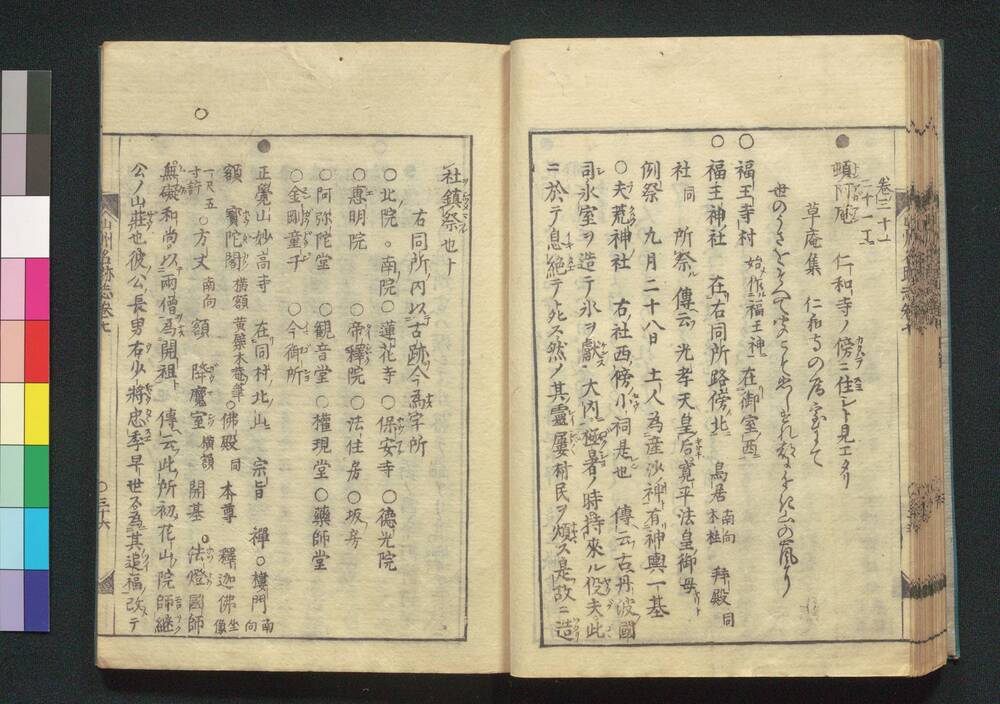 巻三十一
二十一丁
頓阿庵 仁和寺ノ傍ニ住シト見エタリ
草庵集 仁和寺の
世のうさを
○福王寺村 始作福王神 在御室西
○福王神社 在右同所路傍北 鳥居 南向木柱 拝殿 同
社 同 所祭 傳云光孝天皇后寛平法皇御母
例祭 九月二十八日 土人為産沙神有神輿一基
○夫荒神社 右ノ社西傍小祠是也 傳云古丹波國
司氷室ヲ造テ氷ヲ献大内極暑ノ時持來ル役夫此
ニ於テ息絶テ死ス然ノ其靈屢村民ヲ煩ス是故ニ造
社鎮祭也ト
右同所ノ内以古跡今為字所
○北院 ○南院 ○蓮花寺 ○保安寺 ○德光院
○惠明院 ○帝釋院 ○法住房 ○坂房
○阿弥陀堂 ○観音堂 ○權現堂 ○藥師堂
○金剛童子 ○今御所
正覺山妙高寺 在同村北山 宗旨 禪 ○樓門 南向
額 寳陀閣 横額 黄蘗木菴筆 ○佛殿 同 本尊 釋迦佛 坐像
一尺五寸許 ○方丈 南向 額 降魔室 横額 開基 法燈國師
無礙和尚以兩僧為開祖 傳云此所初花山院師継
公ノ山莊也彼公長男右少將忠季早世ス為其追福改テ
山州名跡志巻七
○三十六